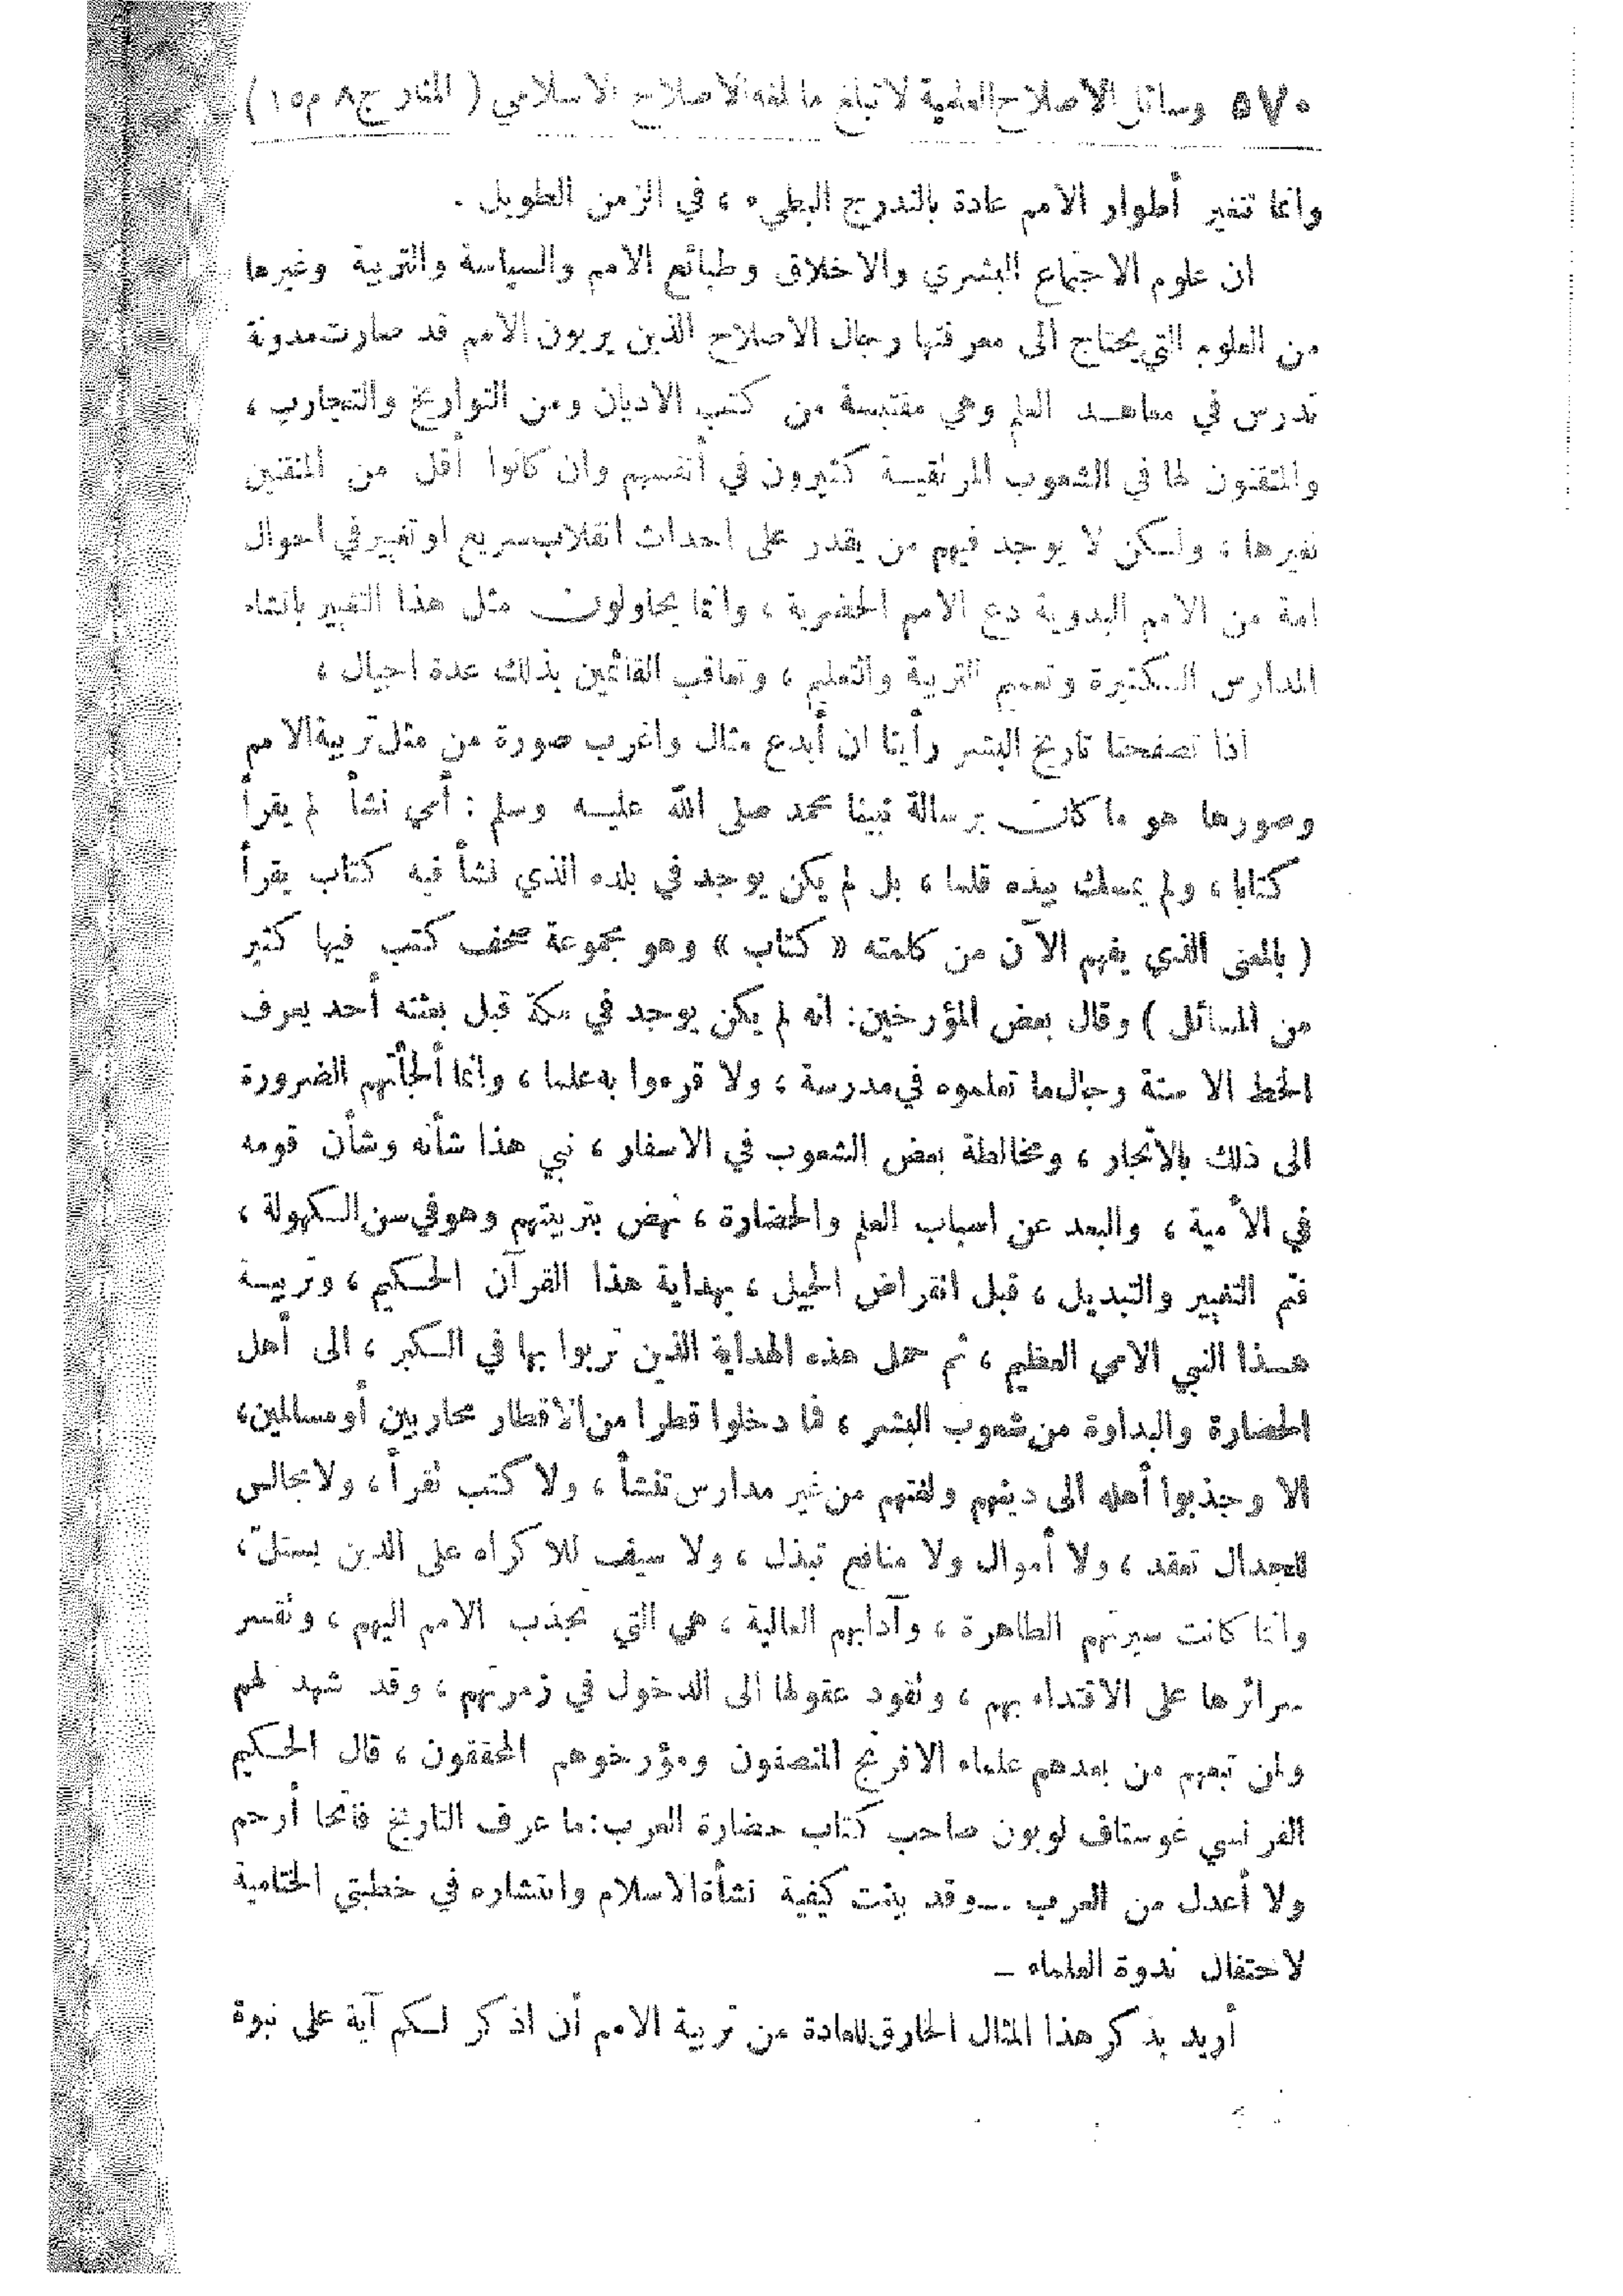 ٥٧٠ وسائل الاصلاح العلمية لا تبلغ ما بلغه الاصلاح الاسلامي ( المنار ج٨ م١٥ )
وانما تتغير أطوار الامم عادة بالتدرج البطيء ، في الزمن الطويل .
ان علوم الاجتماع البشري والاخلاق وطبائع الامم والسياسة والتربية وغيرها
من العلوم التي يحتاج الى معرفتها رجال الاصلاح الذين يربون الامم قد صارت مدونة
تدرس في معاهد العلم وهي مقتبسة من كتب الاديان ومن التواريخ والتجارب ،
والمتقنون لها في الشعوب المرتقية كثيرون في أنفسهم وان كانوا أقل من المتقنين
لغيرها ؛ ولكن لا يوجد فيهم من يقدر على احداث انقلاب سريع او تغيير في احوال
امة من الامم البدوية دع الامم الحضرية ، وانما يحاولون مثل هذا التغيير بانشاء
المدارس الكثيرة وتعميم التربية والتعليم ، وتعاقب القائمين بذلك عدة اجيال ،
اذا تصفحنا تاريخ البشر رأينا ان أبدع مثال واغرب صورة من مثل تربية الامم
وصورها هو ما كان برسالة نبينا محمد صلى الله عليه وسلم : أمي نشأ لم يقرأ
كتابا ، ولم يمسك بيده قلما ، بل لم يكن يوجد في بلده الذي نشأ فيه كتاب يقرأ
( بالمعنى الذي يفهم الآن من كلمته « كتاب » وهو مجموعة صحف كتب فيها كثير
من المسائل ) وقال بعض المؤرخين : انه لم يكن يوجد في مكة قبل بعثته أحد يعرف
الخط الا ستة رجال ما تعلموه في مدرسة ، ولا قرءوا به علما ، وانما ألجأتهم الضرورة
الى ذلك بالاتجار ، ومخالطة بعض الشعوب في الاسفار ، نبي هذا شأنه وشأن قومه
في الأمية ، والبعد عن اسباب العلم والحضارة ، نهض بتربيتهم وهو في سن الكهولة ،
فتم التغيير والتبديل ، قبل انقراض الجيل ، بهداية هذا القرآن الحكيم ، وتربية
هذا النبي الامي العظيم ، ثم حمل هذه الهداية الذين تربوا بها في الكبر ، الى أهل
الحضارة والبداوة من شعوب البشر ، فما دخلوا قطرا من الاقطار محاربين أو مسالمين ،
الا وجذبوا أهله الى دينهم ولغتهم من غير مدارس تنشأ ، ولا كتب تقرأ ، ولا مجالس
للجدال تعقد ، ولا أموال ولا منافع تبذل ، ولا سيف للاكراه على الدين يستل ،
وانما كانت سيرتهم الطاهرة ، وآدابهم العالية ، هي التي تجذب الامم اليهم ، وتقسر
سرائرها على الاقتداء بهم ، وتقود عقولها الى الدخول في زمرتهم ، وقد شهد لهم
ولمن تبعهم من بعدهم علماء الافرنج المنصفون ومؤرخوهم المحققون ، قال الحكيم
الفرنسي غوستاف لوبون صاحب كتاب حضارة العرب : ما عرف التاريخ فاتحا أرحم
ولا أعدل من العرب .ــ وقد بينت كيفية نشأة الاسلام وانتشاره في خطبتي الختامية
لاحتفال ندوة العلماء ــ
أريد بذكر هذا المثال الخارق للعادة من تربية الامم أن اذكر لكم آية على نبوة